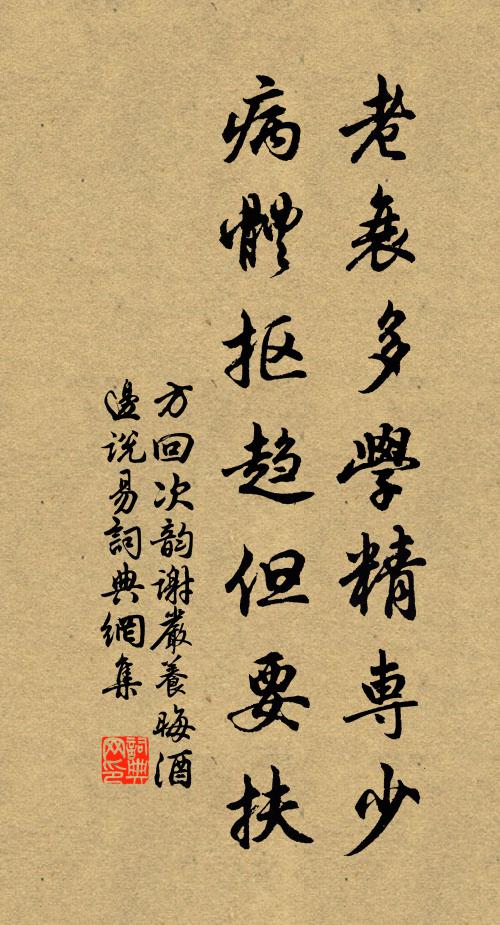 老衰多學精専少
病體抠趋但要扶
方回次韵謝嚴養晦酒
邊説易詞典網集
詞典
网印